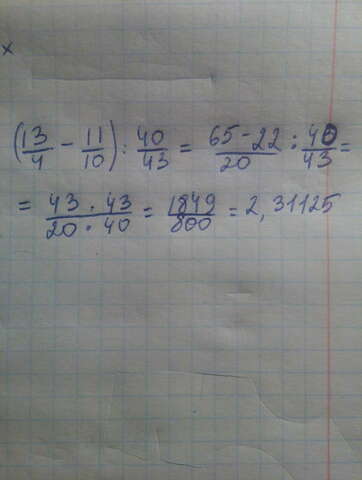 (13/4 - 11/10) : 40/43 = 65-22/20 : 40/43 =
= 43 · 43/20 · 40 = 1849/800 = 2,31125